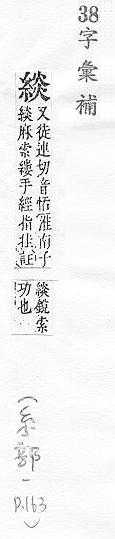 38字彙補
緂
又徒連切音恬淮南子
緂麻索縷手經指挂註
緂銳索
功也
(糸部一
P.163)